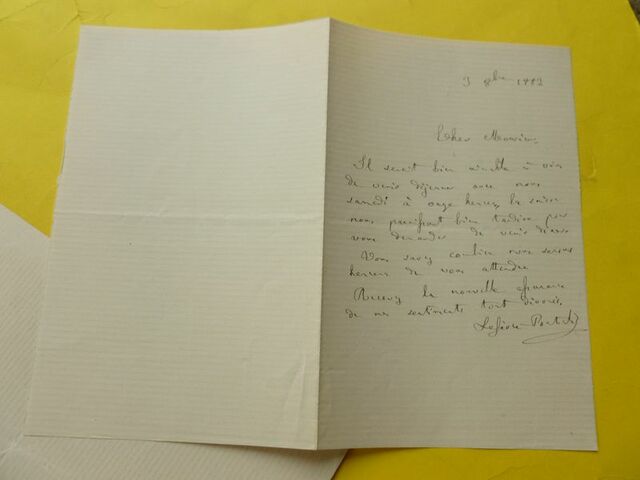 3 8bre 1882
Cher Monsieur,
Il serait bien aimable à vous
de venir déjeuner avec nous
samedi à onze heures, la saison
nous paraissant bien tardive pour
vous demander de venir
Vous savez combien nous serons
heureux de vous attendre
Recevez la nouvelle assurance
de mes sentiments tout dévoués,
Lefèvre Pontalis